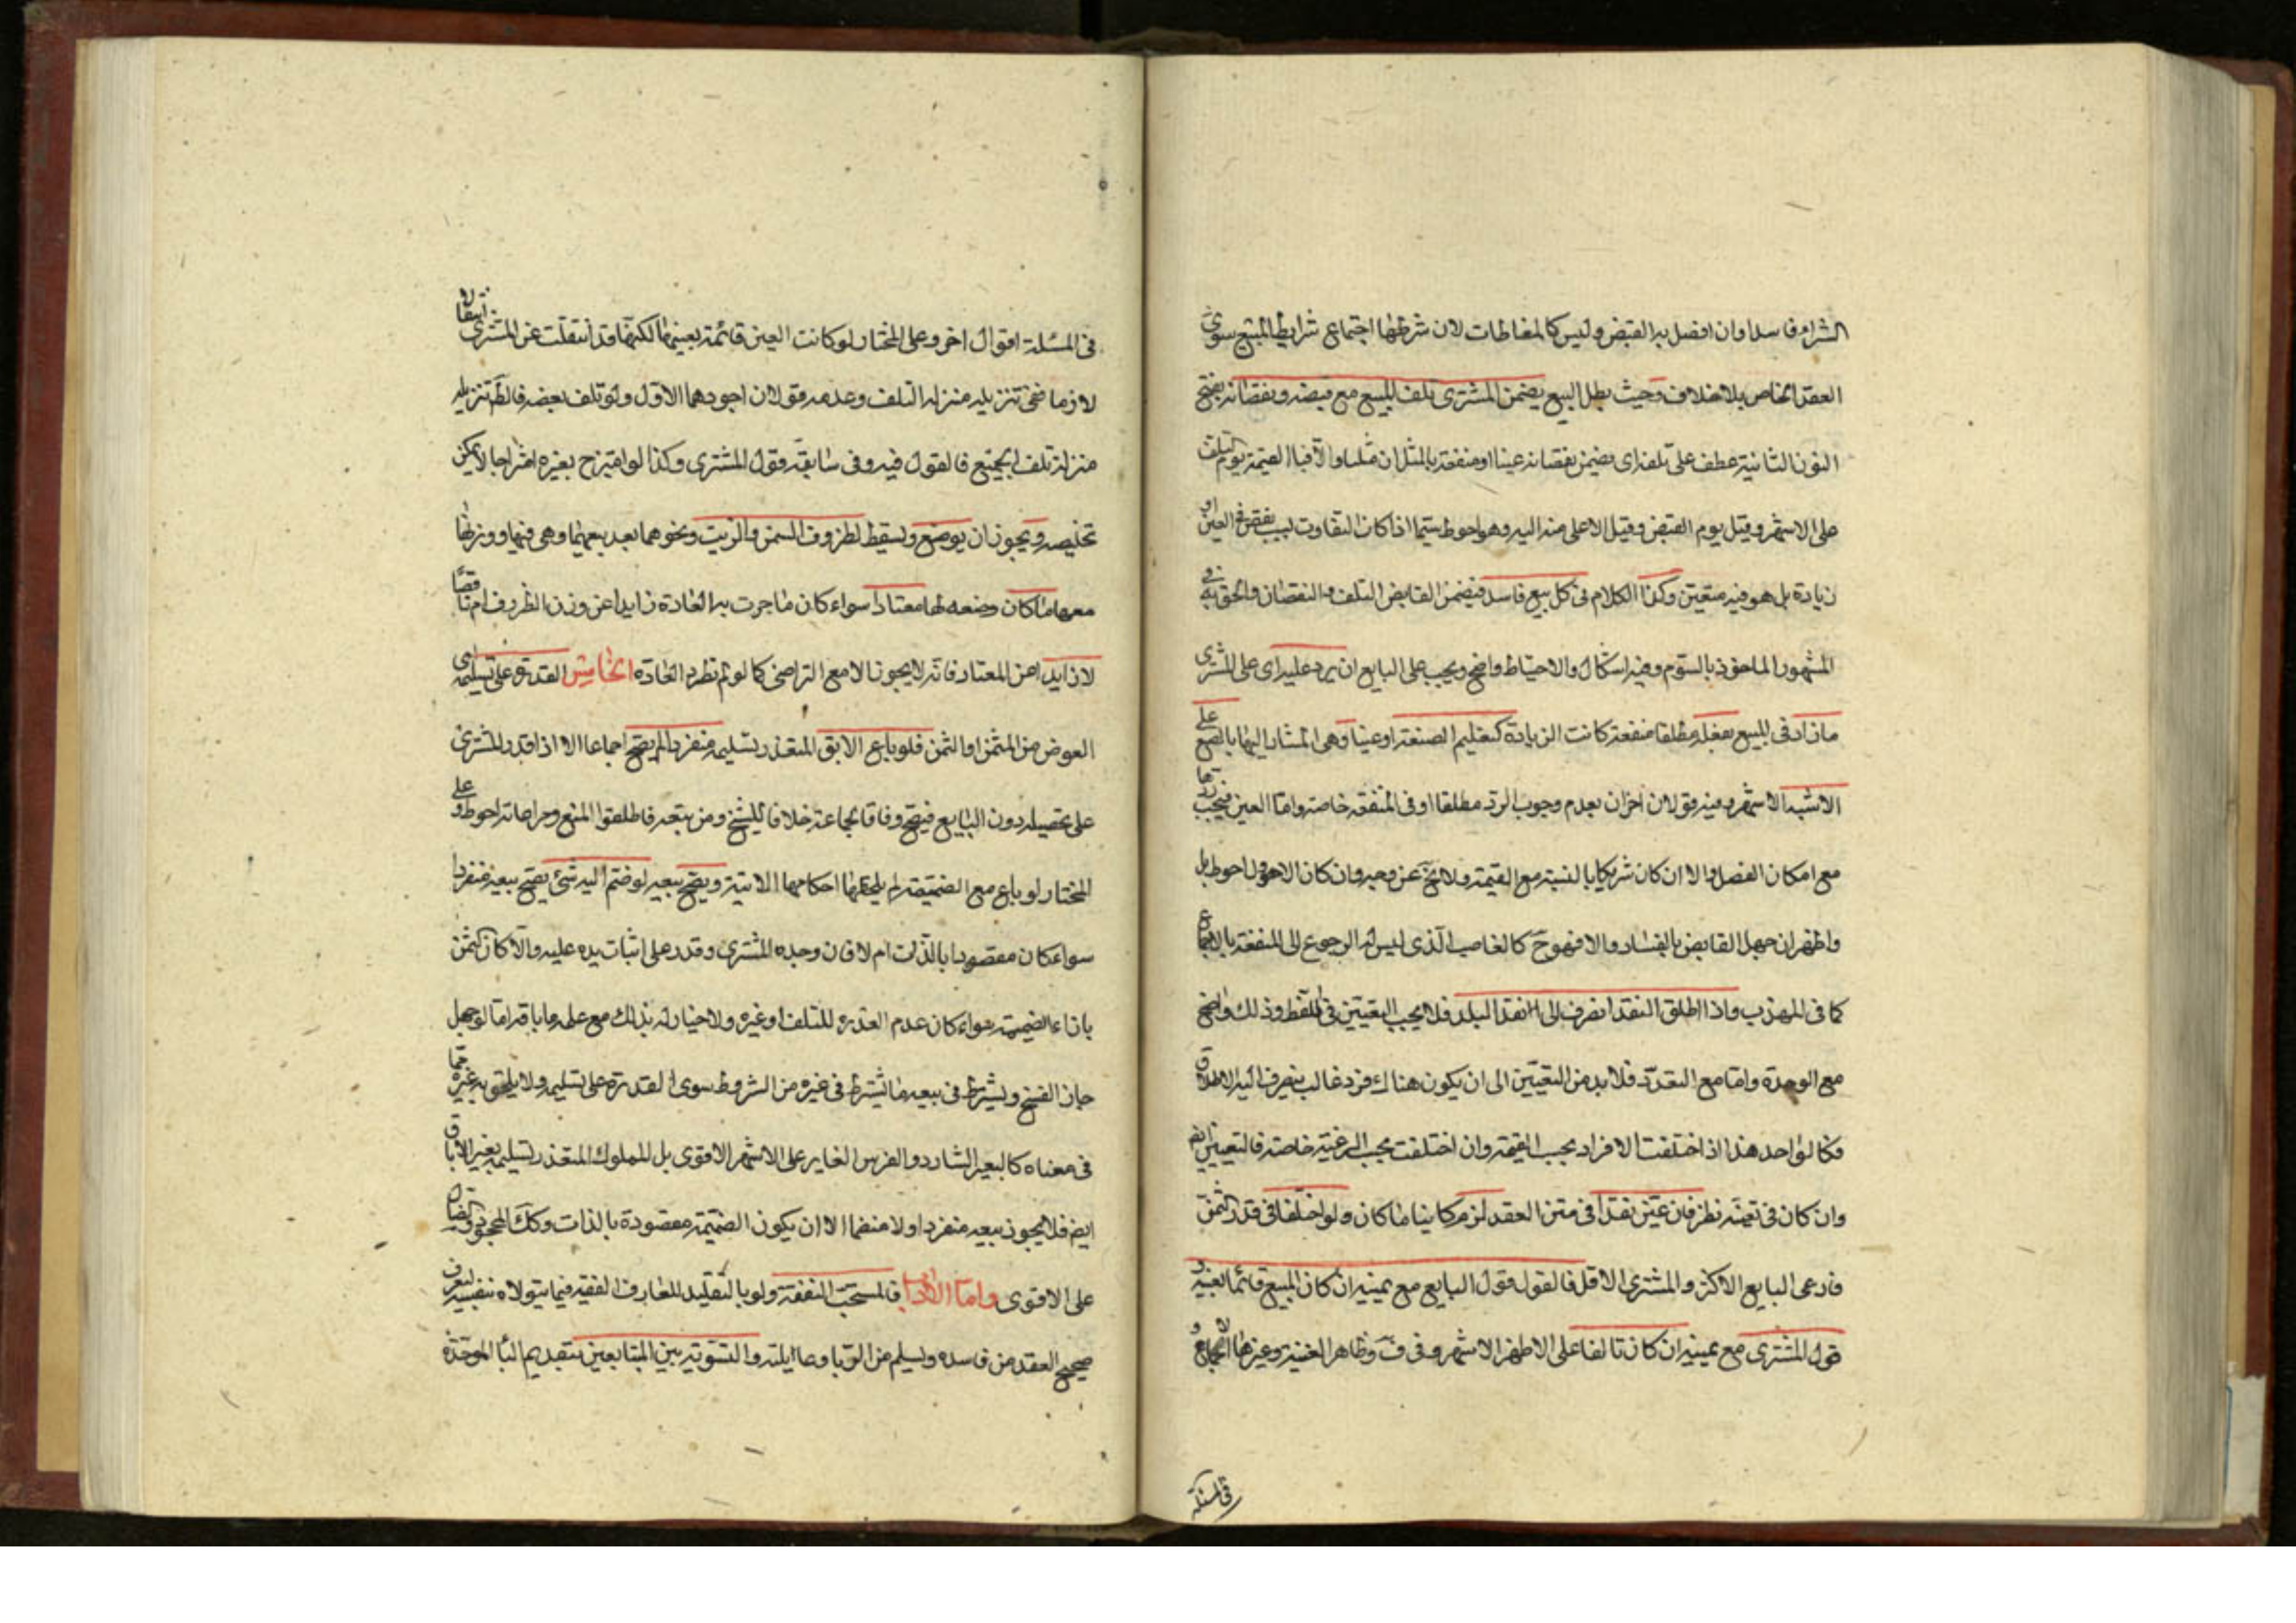 الشراء فاسدا وان اتصل به القبض وليس كالمغاطات لان شرطها اجتماع شرايط البيع سوى
العقد الخاص بلا خلاف وحيث بطل البيع يضمن المشترى تلف المبيع مع قبضه ونقصانه بفتح
النون الثانية عطف على تلف اى يضمن نقصانه عينا او منفعة بالمثل ان مثليا والا فبا القيمة يوم التلف
على الاشهر وقيل يوم القبض وقيل الاعلى منه اليه وهو احوط سيما اذا كان التفاوت بسبب نقص فى العين او
زيادة بل هو فيه متعين وكذا الكلام فى كل بيع فاسد فيضمن القابض التلف والنقصان والحق به فى
المشهور الماخوذ بالسوم وفيه اشكال والاحتياط واضح ويجب على البايع ان يرد عليه اى على المشترى
ما زاد فى المبيع بفعله مطلقا منفعة كانت الزيادة كتعليم الصنعة او عينا وهى المشار اليها بالصبغ على
الاشبه الاشهر وفيه قولان اخران بعدم وجوب الرد مطلقا او فى المنفعة خاصة واما العين فيجب ردها
مع امكان الفصل والا ان كان شريكا بالنسبة مع القيمة ولا يخ عن وجه وان كان الاحوط بل
واظهر ان جهل القابض بالفساد والا فهو ح كالغاصب الذى ليس له الرجوع الى المنفعة بالاجماع
كما فى المهذب واذا اطلق النقد انصرف الى نقد البلد فلا يجب التعيين فى اللفظ وذلك واضح
مع الوحدة واما مع التعدد فلا بد من التعيين الى ان يكون هناك فرد غالب ينصرف اليه الاطلاق
فكالواحد هذا اذا اختلفت الافراد بحسب القيمة وان اختلفت بحسب الرغبة خاصة فالتعيين ايض
وان كان فى تعينه نظر فان عين نقدا فى متن العقد لزم كاينا ما كان ولو اختلفا فى قدر الثمن
فادعى البايع الاكثر والمشترى الاقل فالقول قول البايع مع يمينه ان كان المبيع قائما بعينه و
قول المشترى مع يمينه ان كان تالفا على الاظهر الاشهر وفى ف وظاهر الغنية وغيرها الاجماع و
فى المسئلة
فى المسئلة اقوال اخر وعلى المختار لو كانت العين قائمة بعينها لكنها قد انتقلت عن المشترى انتقالا
لازما ففى تنزيله منزلة التلف وعدمه قولان اجودهما الاول ولو تلف بعضه فالظ تنزيله
منزلة تلف الجميع فالقول فيه وفى سابقه قول المشترى وكذا لو امتزج بغيره امتزاجا لا يمكن
تخليصه ويجوز ان يوضع ويسقط لظروف السمن والزيت ونحوهما بعد بيعهما وهى فيها ووزنها
معها ما كان وضعه لها معتادا سواء كان ما جرت به العادة زايدا عن وزن الظروف ام ناقصا
لا زايدا عن المعتاد فانه لا يجوز الا مع التراضى كما لو لم تطرد العادة الخامس القدرة على تسليم اى
العوض من المثمن او الثمن فلو باع الابق المتعذر تسليمه منفردا لم يصح اجماعا الا اذا قدر المشترى
على تحصيله دون البايع فيصح وفاقا لجماعة خلافا للشيخ ومن تبعه فاطلقوا المنع ومراعاته احوط وعلى
المختار لو باع مع الضميمة لم يلحقها احكامها الاتية ويصح بيعه لو ضم اليه شئ يصح بيعه منفردا
سواء كان مقصودا بالذات ام لا فان وجده المشترى وقدر على اثبات يده عليه والا كان الثمن
بازاء الضميمة سواء كان عدم القدرة للتلف او غيره ولا خيار له بذلك مع علمه باباقه اما لو جهل
جاز الفسخ ويشترط فى بيعه ما يشترط فى غيره من الشروط سوى القدرة على تسليمه ولا يلحق به غيره مما
فى معناه كالبعير الشارد والفرس الغاير على الاشهر الاقوى بل المملوك المتعذر تسليمه بغير الاباق
ايض فلا يجوز بيعه منفردا ولا منضما الا ان يكون الضميمة مقصودة بالذات وكك المجحود
على الاقوى واما الاداب فالمستحب التفقه ولو بالتقليد للعارف الفقيه فيما يتولاه بنفسه ليعرف
صحيح العقد من فاسده ويسلم من الربا وما ايلته والتسوية بين المبتايعين بتقديم البا الموحدة